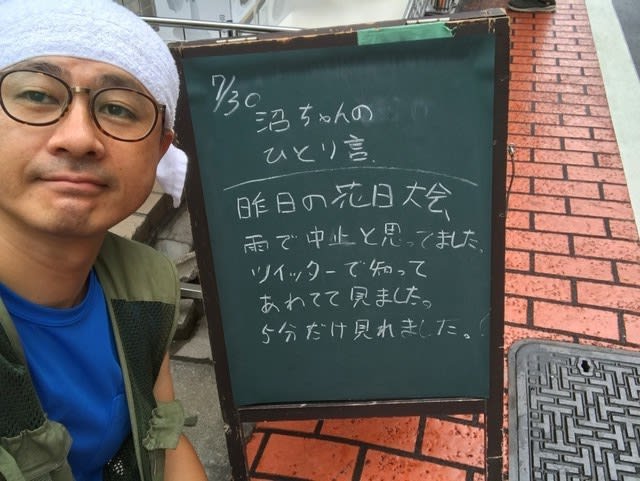 7/30
沼ちゃんの
ひとり言
昨日の花日大会
雨で中止と思ってました。
ツイッターで知って
あわてて見ました。
5分だけ見れました。!